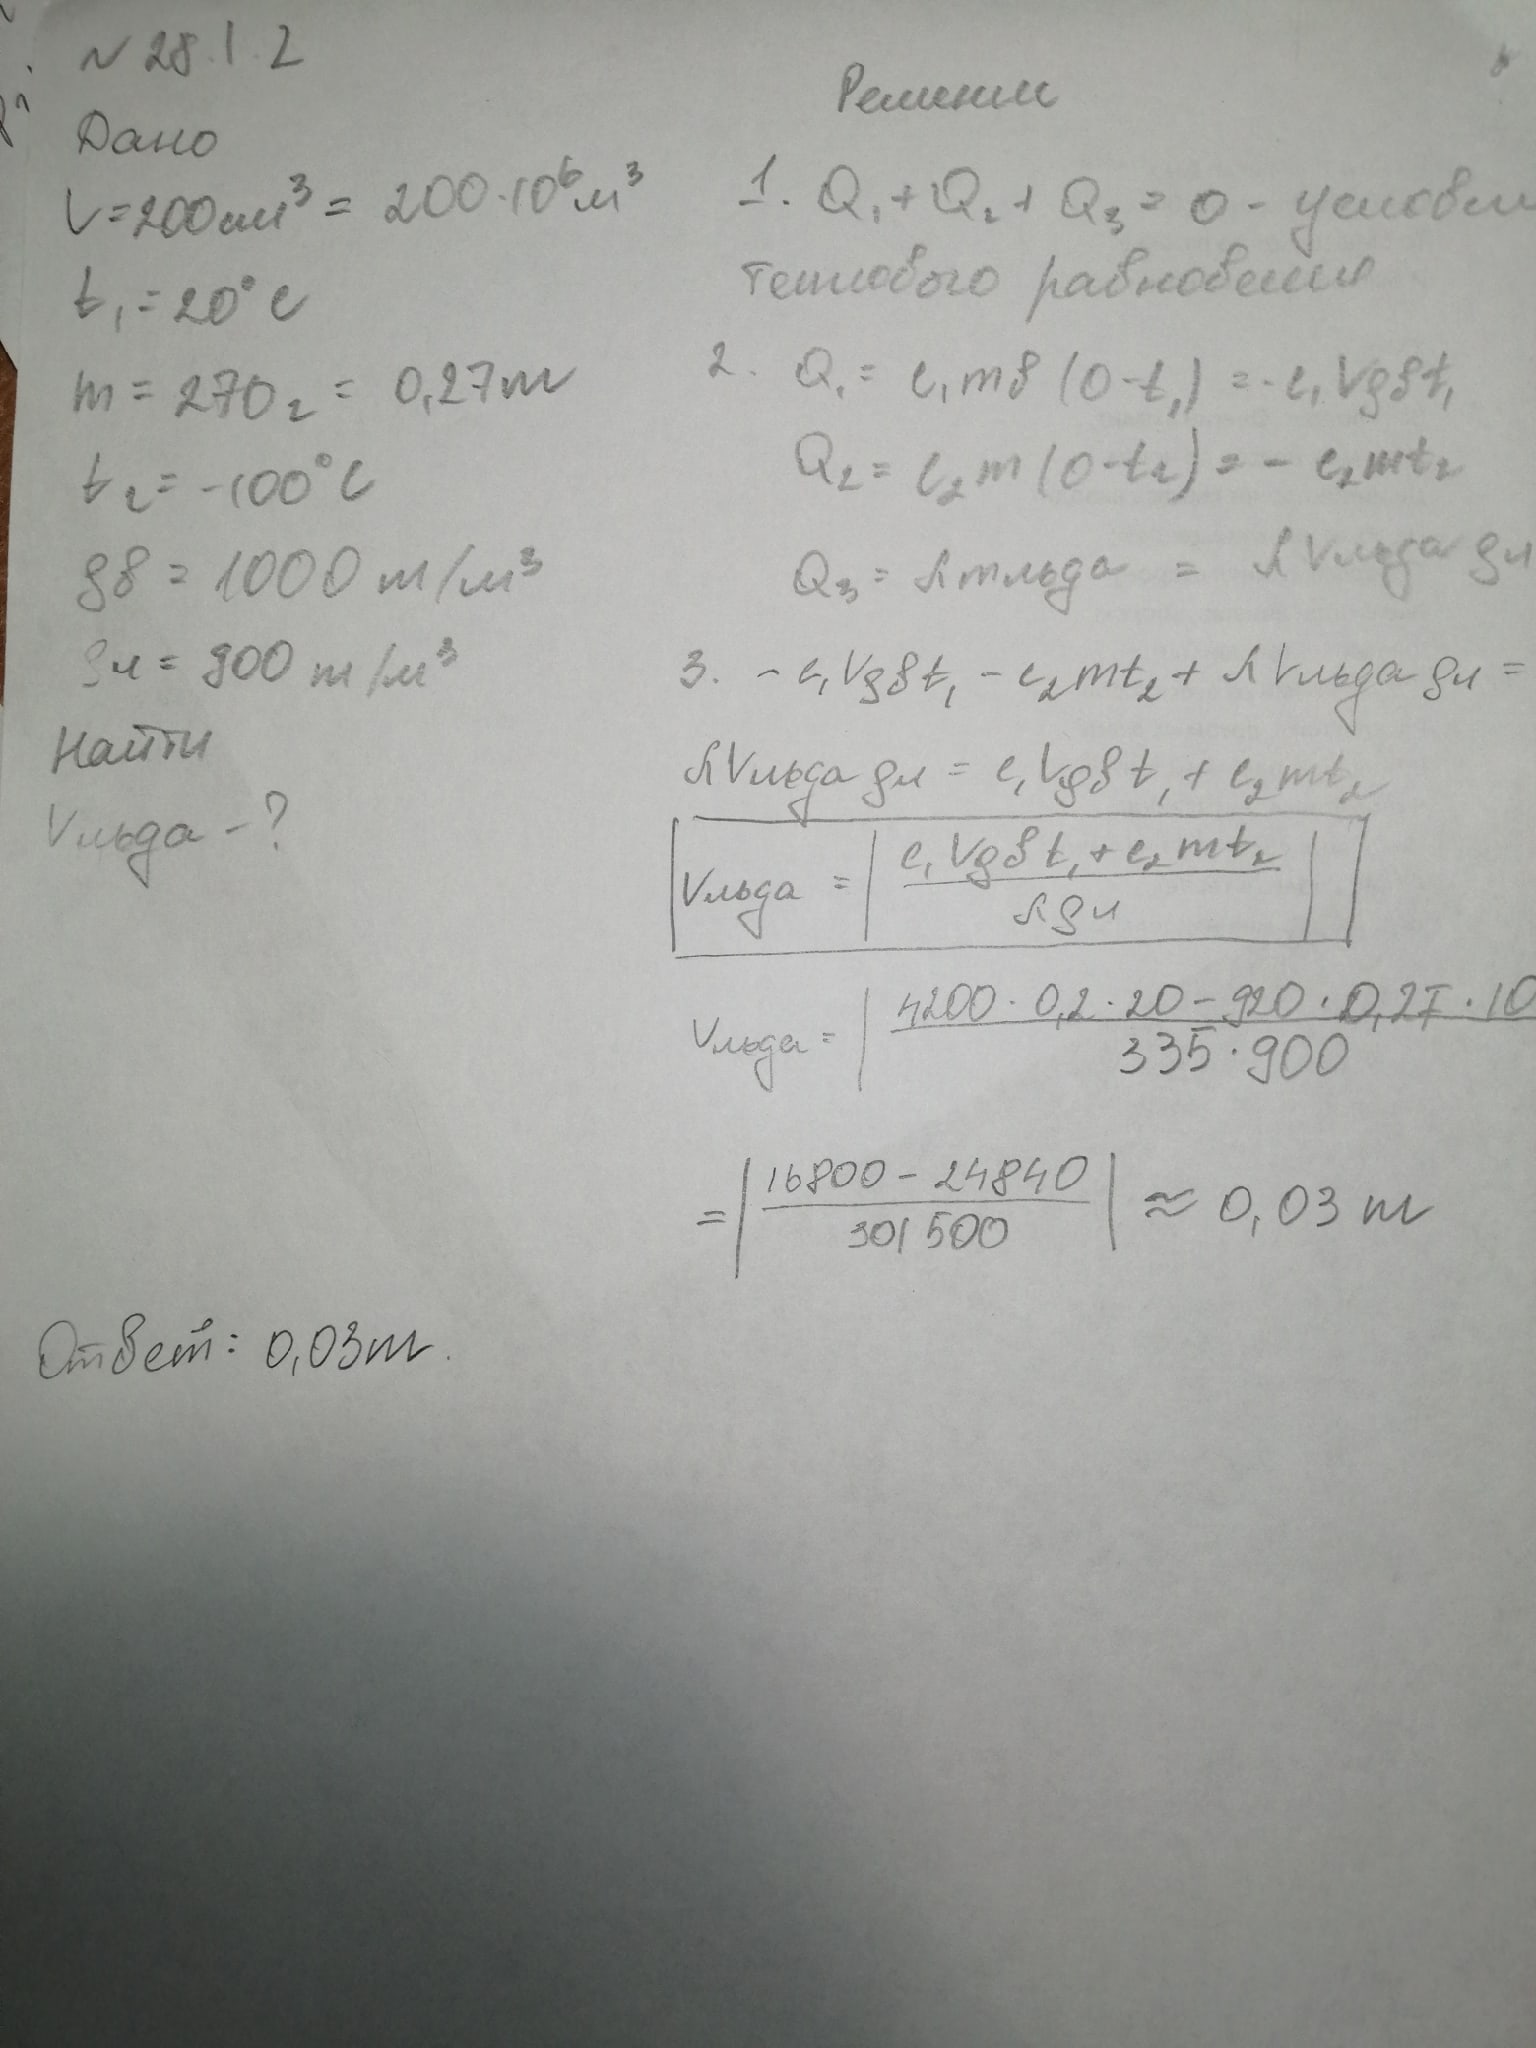 N 28.1.2
Дано
V=200см³ = 200·10⁶м³
t₁=20°С
m = 270г = 0,27т
t₂=-100°С
ρв = 1000 т/м³
ρл = 900 т/м³
Найти
Vльда -?
Решение
1. Q₁+Q₂+Q₃=0 - условие
теплового равновесия
2. Q₁= c₁mв(0-t₁)=-c₁Vρвt₁
Q₂= c₂m(0-t₂)=-c₂mt₂
Q₃= λmльда = λVльда ρл
3. -c₁Vρвt₁-c₂mt₂+λVльда ρл=
λVльда ρл = c₁Vρвt₁+c₂mt₂
Vльда = | c₁Vρвt₁+c₂mt₂ / λρл |
Vльда = | 4200·0,2·20-920·0,27·10 / 335·900
= | 16800-24840 / 301500 | ≈ 0,03 т
Ответ: 0,03т.